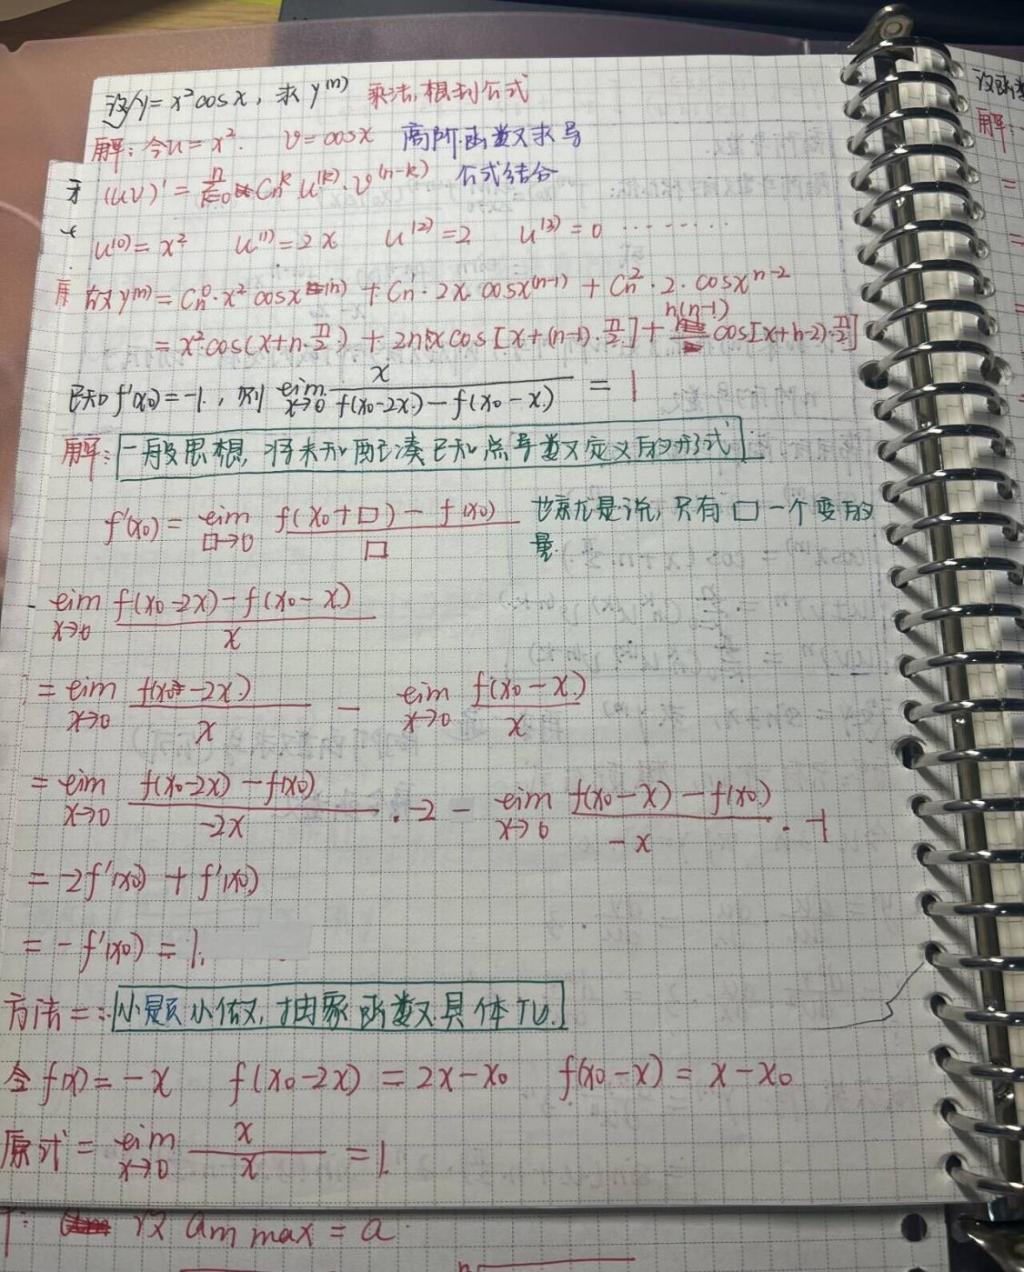 设y=x²cosx, 求y⁽ⁿ⁾ 乘法,想到公式
解:令u=x². v=cosx 高阶函数求导
(uv)' = Σ_{k=0}^{n} C_n^k u⁽ᵏ⁾·v⁽ⁿ⁻ᵏ⁾ 公式结合
u⁽⁰⁾=x² u⁽¹⁾=2x u⁽²⁾=2 u⁽³⁾=0 ········
故y⁽ⁿ⁾=C_n^0·x²cosx⁽ⁿ⁾+C_n^1·2x cosx⁽ⁿ⁻¹⁾+C_n^2·2·cosx^{n-2}
=x²·cos(x+n·π/2)+2nxcos[x+(n-1)·π/2]+n(n-1)cos[x+n-2)·π/2]
已知f'(x₀)=-1, 则 lim_{x→0} x/(f(x₀-2x)-f(x₀-x)) = 1
解: 一般思想, 将未知配凑已知点导数定义的形式
f'(x₀)=lim_{□→0} (f(x₀+□)-f(x₀))/□ 也就是说, 只有□一个变的
量.
lim_{x→0} (f(x₀-2x)-f(x₀-x))/x
=lim_{x→0} f(x₀-2x)/x - lim_{x→0} f(x₀-x)/x
=lim_{x→0} (f(x₀-2x)-f(x₀))/(-2x) ·-2 - lim_{x→0} (f(x₀-x)-f(x₀))/(-x) ·-1
=-2f'(x₀)+f'(x₀)
=-f'(x₀)=1.
方法二: 小题小做, 抽象函数具体化.
令f(x)=-x f(x₀-2x)=2x-x₀ f(x₀-x)=x-x₀
原式=lim_{x→0} x/x =1.
设 am max = a